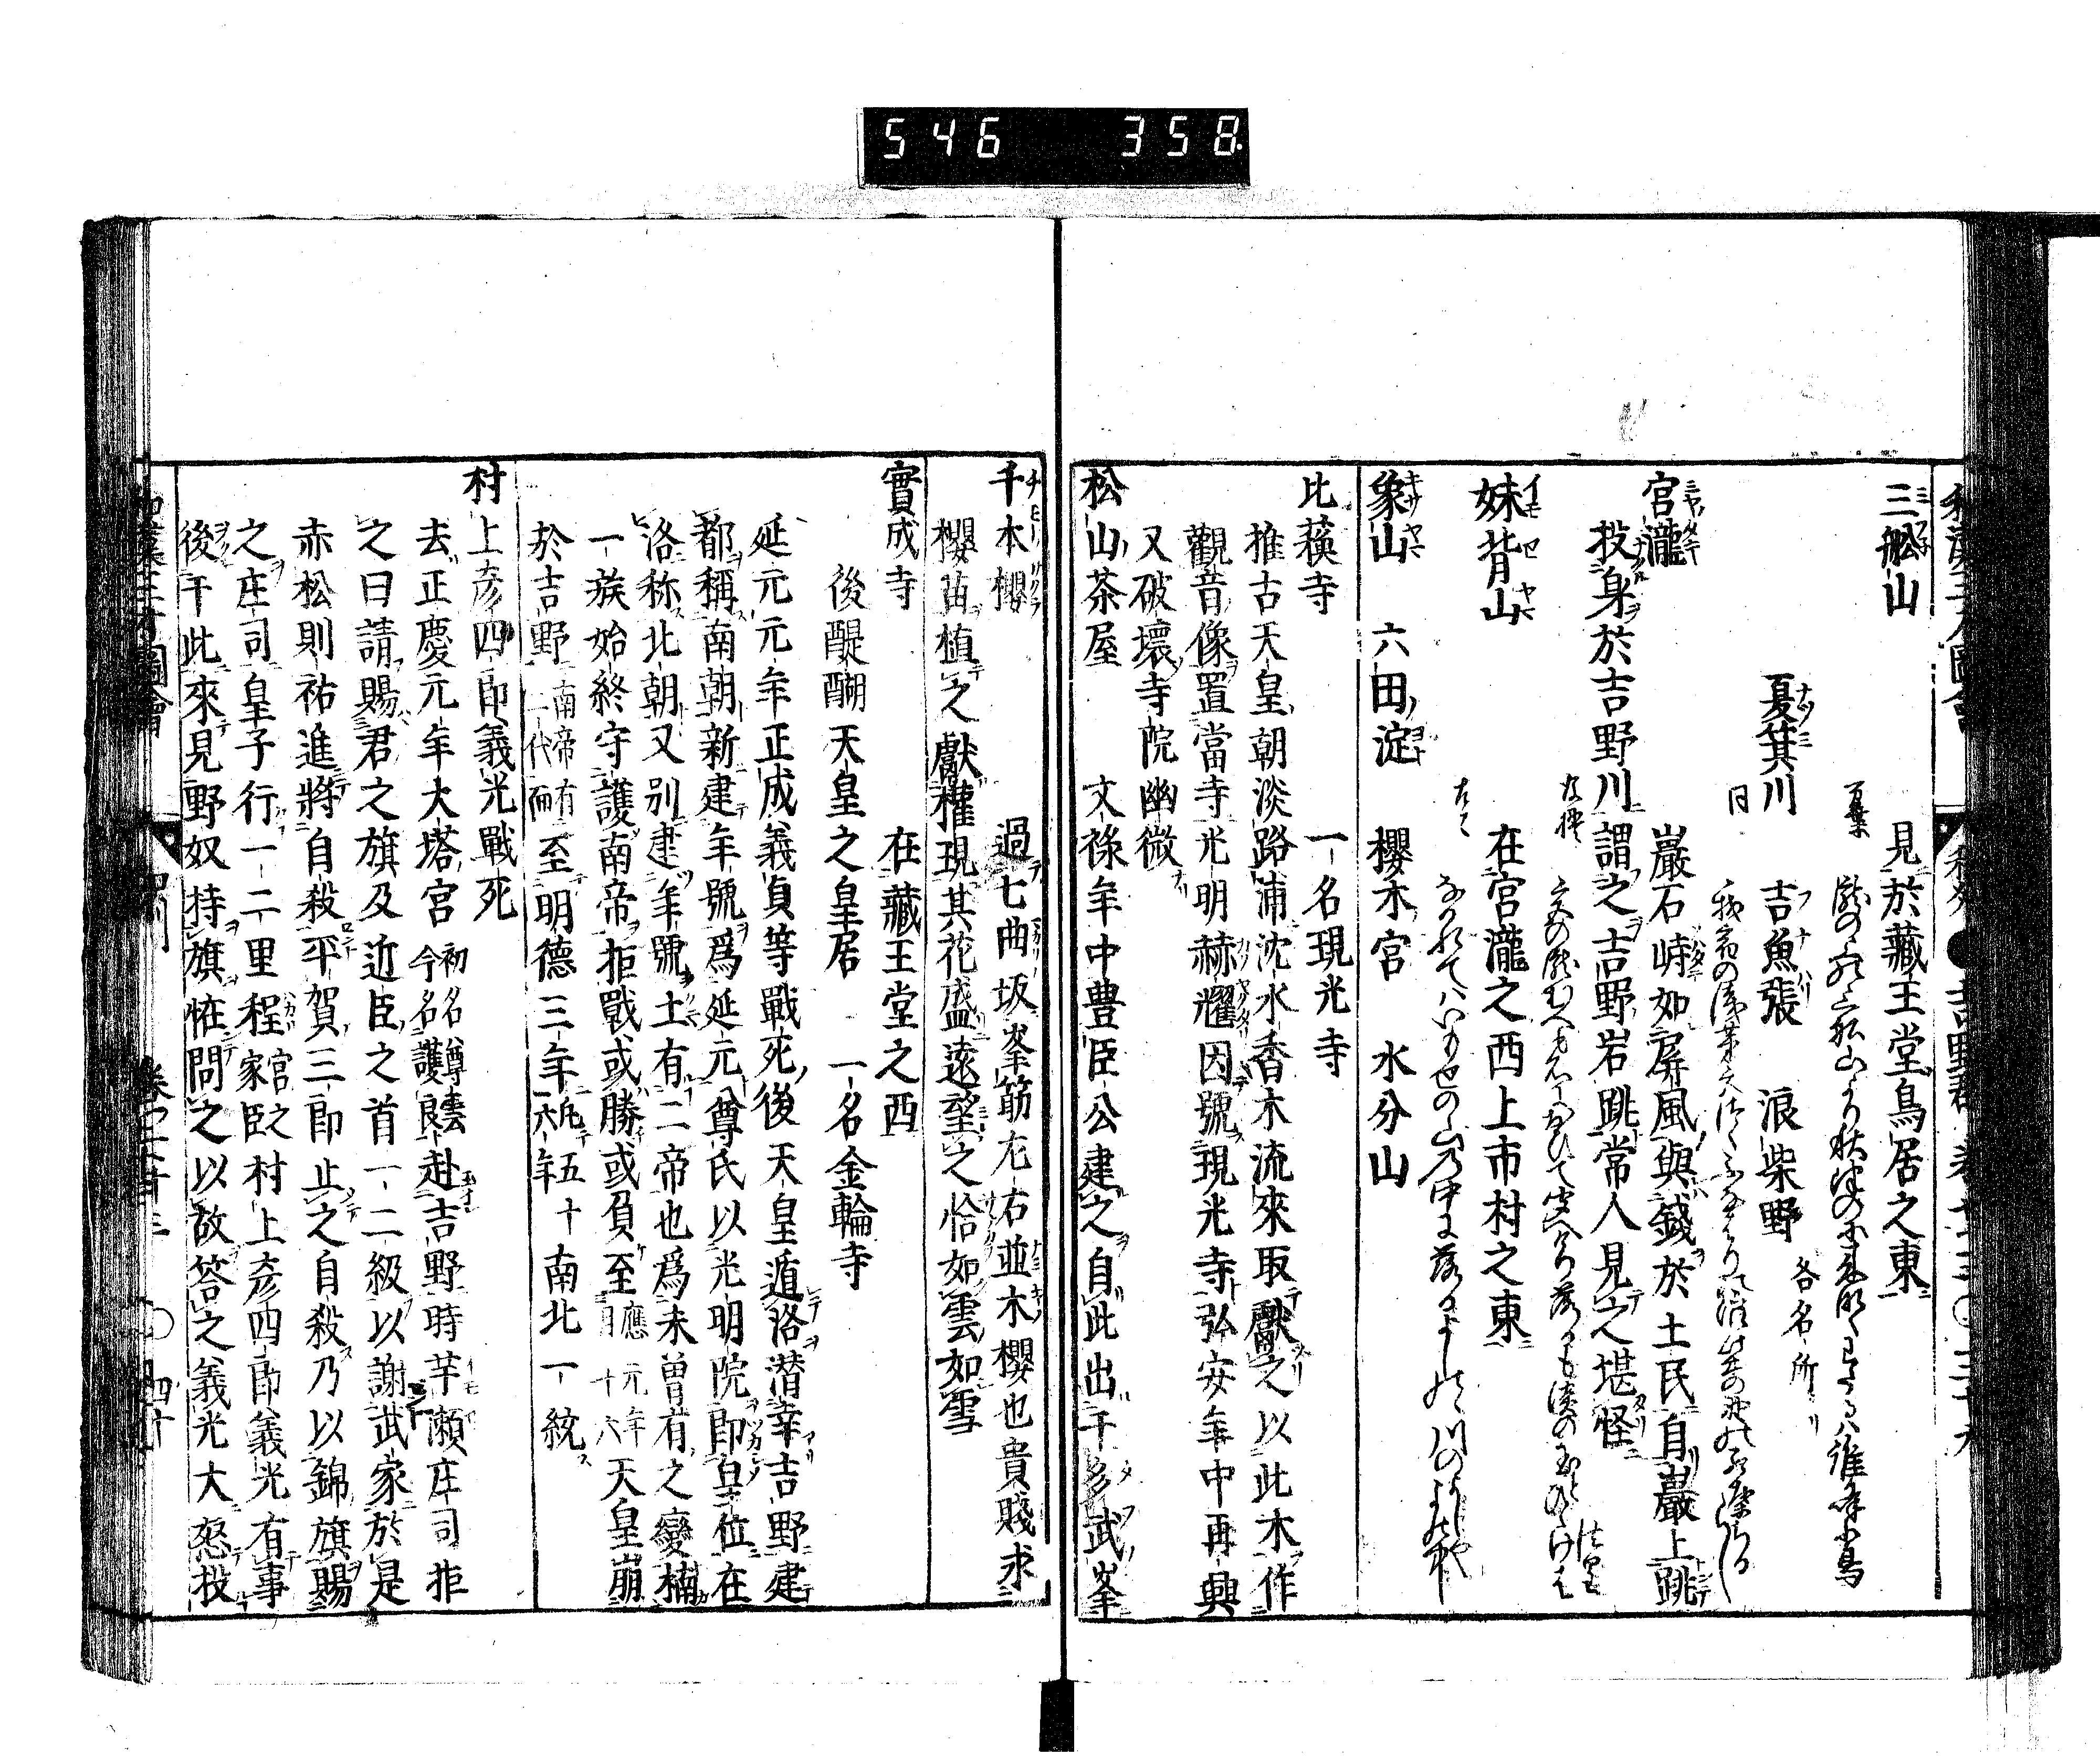 546 358
三舩山 見於藏王堂鳥居之東
万葉
夏箕川 吉魚張 浪柴野 各名所
同
宮瀧 巖石峙如屏風與錢於土民自巖上跳
投身於吉野川謂之吉野岩跳常人見之堪怪
妹背山 在宮瀧之西上市村之東
古今 ながれてはいもせの山の中に落るよしのゝ川のよしや世の中
象山 六田淀 櫻木宮 水分山
比蘓寺 一名現光寺
推古天皇朝淡路浦沈水香木流來取獻之以此木作
觀音像置當寺光明赫耀因號現光寺弘安年中再興
又破壞寺院幽微
松山茶屋 文祿年中豊臣公建之自此出于多武峯
千本櫻 過七曲坂峯筋左右並木櫻也貴賤求
櫻苗植之獻權現其花盛遠望之恰如雲如雪
實成寺 在藏王堂之西
後醍醐天皇之皇居 一名金輪寺
延元元年正成義貞等戰死後天皇遁洛潜幸吉野建
都稱南朝新建年號爲延元尊氏以光明院即皇位在
洛称北朝又別建年號土有二帝也爲未曽有之變楠
一族始終守護南帝拒戰或勝或負至應元年十六月天皇崩
於吉野南帝有二代而至明德三年凡五十六年南北一統
村上彦四郎義光戰死
去正慶元年大塔宮初名尊雲今名護良赴吉野時芋瀬庄司拒
之曰請賜君之旗及近臣之首一二級以謝武家於是
赤松則祐進將自殺平賀三郎止之自殺乃以錦旗賜
之庄司皇子行一二里程宮之家臣村上彦四郎義光有事
後于此來見野奴持旗恠問之以故答之義光大怒投
和漢三才圖會 和州 卷之七十三 ○四十